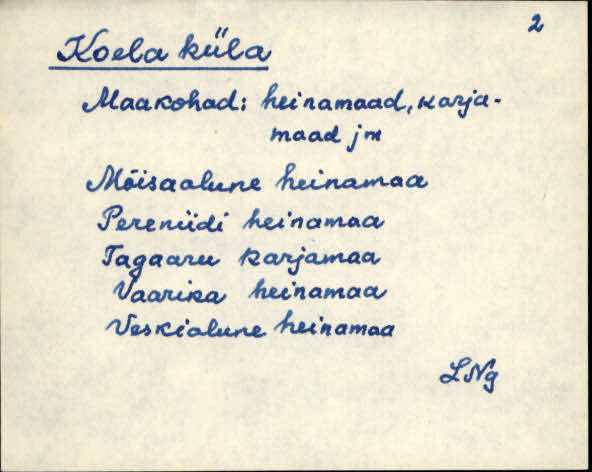 2
Koela küla
Maakohad: heinamaad, karja-
maad jm
Mõisaalune heinamaa
Pereniidi heinamaa
Tagaaru karjamaa
Vaarika heinamaa
Veskialune heinamaa
LNg